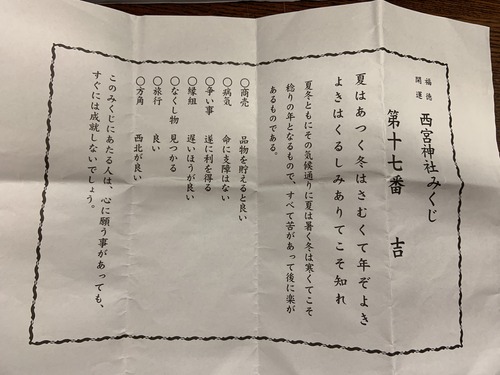 福徳
開運
西宮神社みくじ
第十七番 吉
夏はあつく冬はさむくて年ぞよき
よきはくるしみありてこそ知れ
夏冬ともにその気候通りに夏は暑く冬は寒くてこそ
稔りの年となるもので、すべて苦があって後に楽が
あるものである。
〇商売 品物を貯えると良い
〇病気 命に支障はない
〇争い事 遂に利を得る
〇縁組 遅いほうが良い
〇なくし物 見つかる
〇旅行 良い
〇方角 西北が良い
このみくじにあたる人は、心に願う事があっても、
すぐには成就しないでしょう。